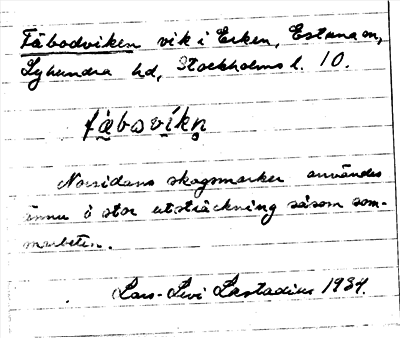 Fäbodviken vik i Erken, Estuna sn,
Lyhundra hd, Stockholms l. 10.
fäbovíkn
Norsidans skogsmarker användes
ännu i stor utsträckning såsom som-
marbeten.
Lars-Levi Læstadius 1934.